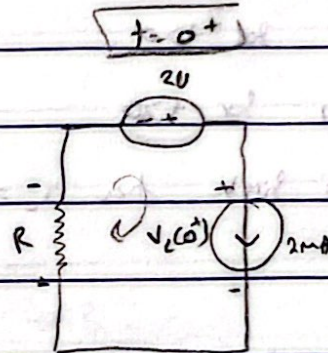 t=0⁺
2V
- +
- +
R V_L(0⁺) 2mA
-